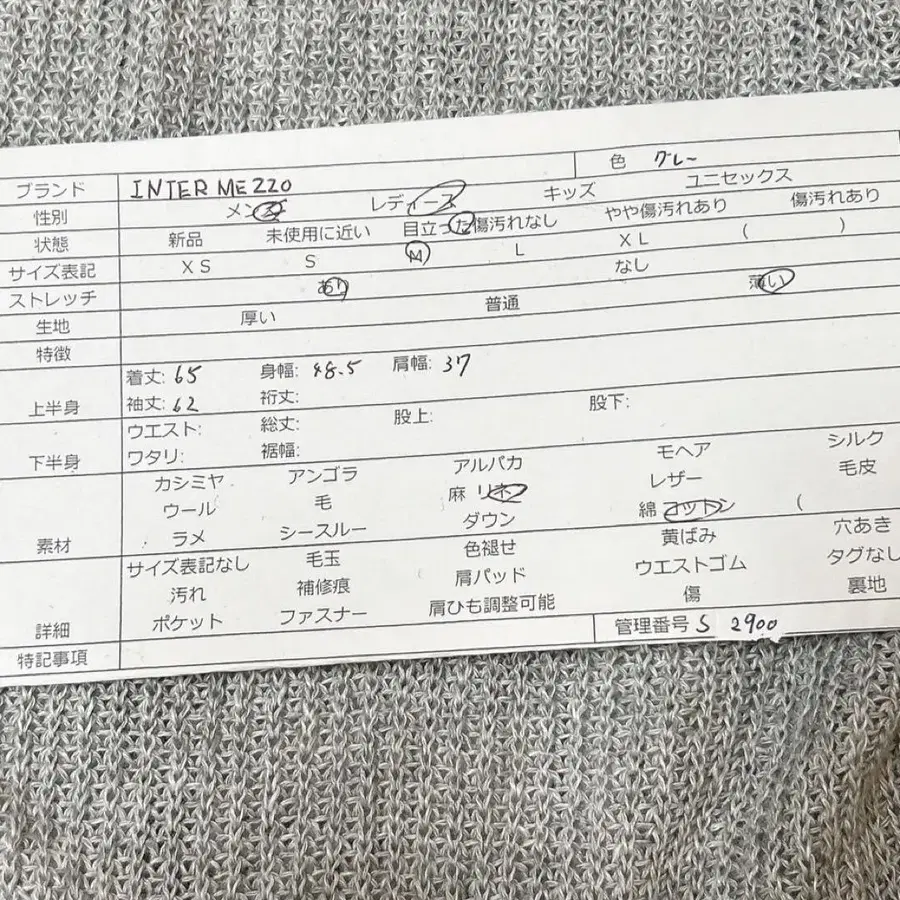 ブランド INTER MEZZO 色 グレー
性別 メンズ レディース キッズ ユニセックス
状態 新品 未使用に近い 目立った傷汚れなし やや傷汚れあり 傷汚れあり
サイズ表記 XS S M L XL ( )
ストレッチ あり なし
生地 厚い 普通 薄い
特徴
上半身 着丈: 65 身幅: 48.5 肩幅: 37
袖丈: 62 裄丈:
下半身 ウエスト: 総丈: 股上: 股下:
ワタリ: 裾幅:
素材 カシミヤ アンゴラ アルパカ モヘア シルク
ウール 毛 麻 リネン レザー 毛皮
ラメ シースルー ダウン 綿 コットン (
詳細 サイズ表記なし 毛玉 色褪せ 黄ばみ 穴あき
汚れ 補修痕 肩パッド ウエストゴム タグなし
ポケット ファスナー 肩ひも調整可能 傷 裏地
特記事項 管理番号 S 2900